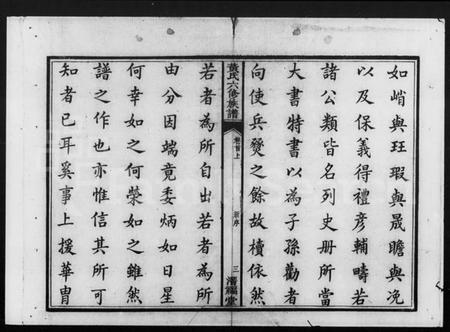 如峭與玨瑕與晟瞻與況
以及保義得禮彥輔疇若
諸公類皆名列史冊所當
大書特書以為子孫勸者
向使兵燹之餘故櫝依然
黃氏六修族譜
卷首上
新序
三
潛福堂
若者為所自出若者為所
由分因端竟委炳如日星
何幸如之何榮如之雖然
譜之作也亦惟信其所可
知者已耳奚事上援華胄